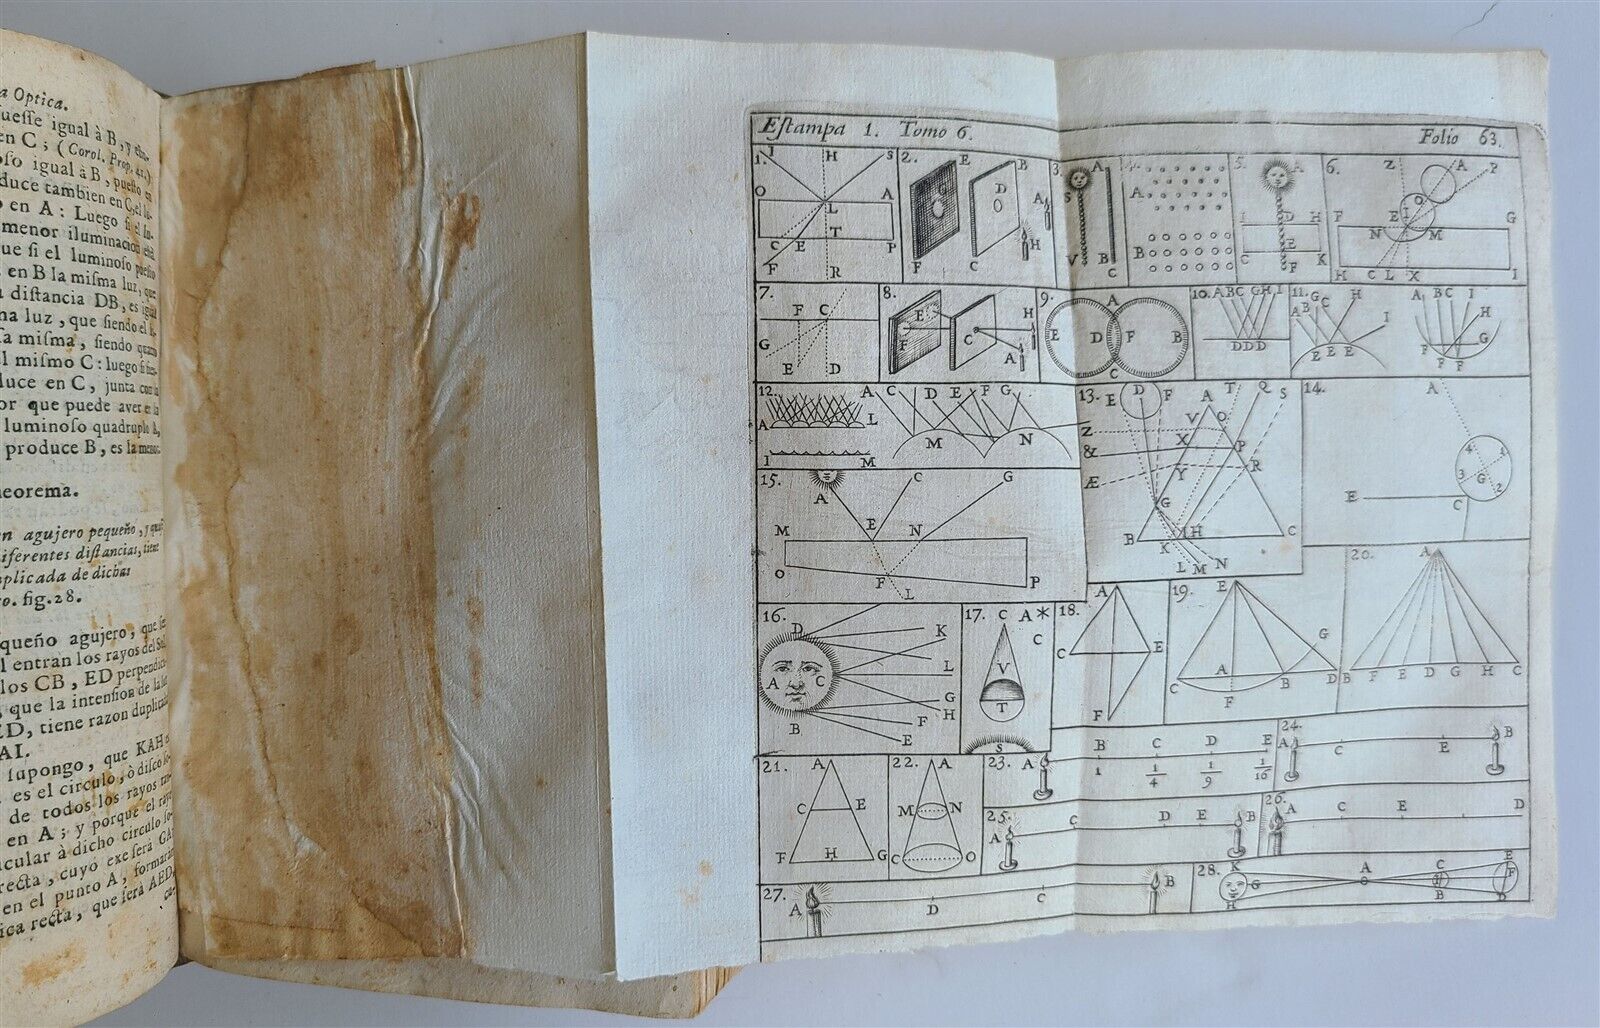 a Optica.
uesse igual à B, y
en C; (Corol. Prop. 41.)
oso igual à B, puesto en
duce tambien en C, el
o en A: Luego si el
menor iluminacion
que si el luminoso puesto
en B la misma luz, que
distancia DB, es igual
ma luz, que siendo el
sa misma, siendo
l mismo C: luego si
duce en C, junta con
or que puede aver en
luminoso quadruplo A,
produce B, es la menor.
eorema.
en agujero pequeño, y
iferentes distancias, tiene
uplicada de dichas
ro. fig. 28.
queño agujero, que
l entran los rayos del Sol
los CB, ED
que la intension de la
ED, tiene razon
AI.
supongo, que KAH
es el circulo, ò disco
de todos los rayos
en A; y porque el rayo
icular à dicho circulo
recta, cuyo exe serà GA
en el punto A, formaràn
ica recta, que serà AED,
Estampa 1. Tomo 6. Folio 63.
1. I H S O A L T C E P F R
2. E B G D F C H A
3. A S V B C
4. A B
5. A I D H E C K F
6. Z A P O I F E G N M H C L X I
7. F C G E D
8. E H F C A
9. A D F B C
10. A B C G H I D D D
11. A B G C H I E E E A B C I H G F F F
12. A L I M A C D E F G M N
13. E D F A T Q S V O Z X P & Y R Æ G B K H C L M N
14. A 4 1 3 G 2 E C
15. A C G M E N O F L P
16. D K L A C G H F E B
17. C A C V T S
18. A C E F
19. E G A C B D F
20. A B F E D G H C
21. A C E F H G
22. A M N C O
23. A B C D E 1 1/4 1/9 1/16
24. A C E B
25. A C D E B
26. A C E D
27. A D C B
28. K G H A C I B E F D